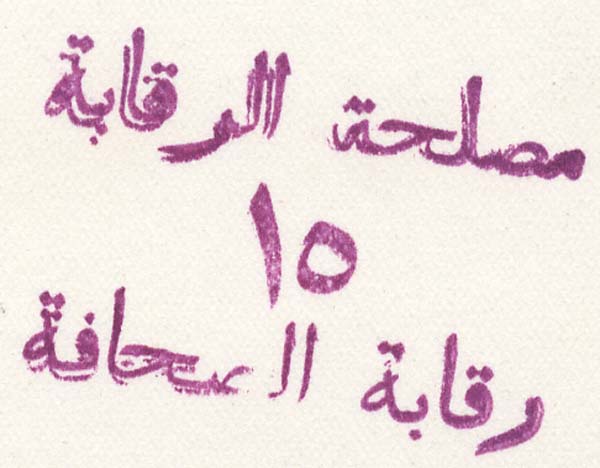 مصلحة الرقابة
١٥
رقابة الصحافة